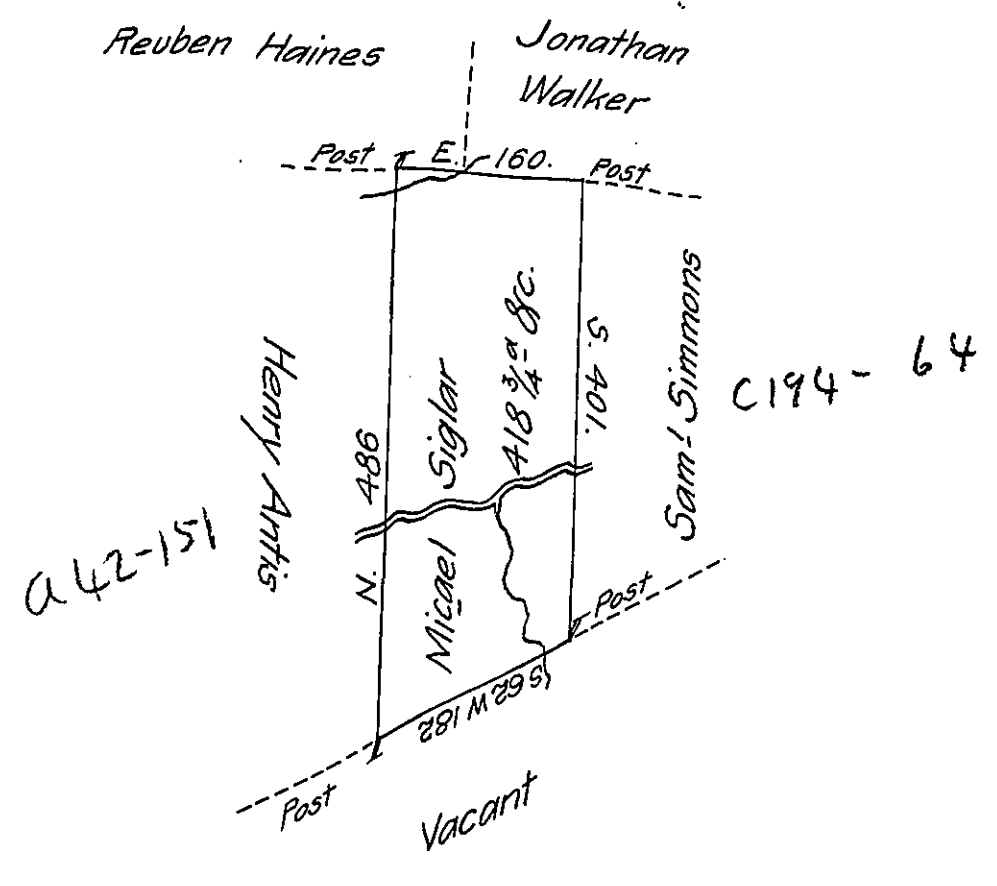 Reuben Haines
Jonathan
Walker
Post
E. 160.
Post
Henry Antis
N. 486
Micael Siglar
418 3/4 a &c.
S. 401.
Sam-l Simmons
C194- 64
a42-151
Post
S62W182
Post
Vacant